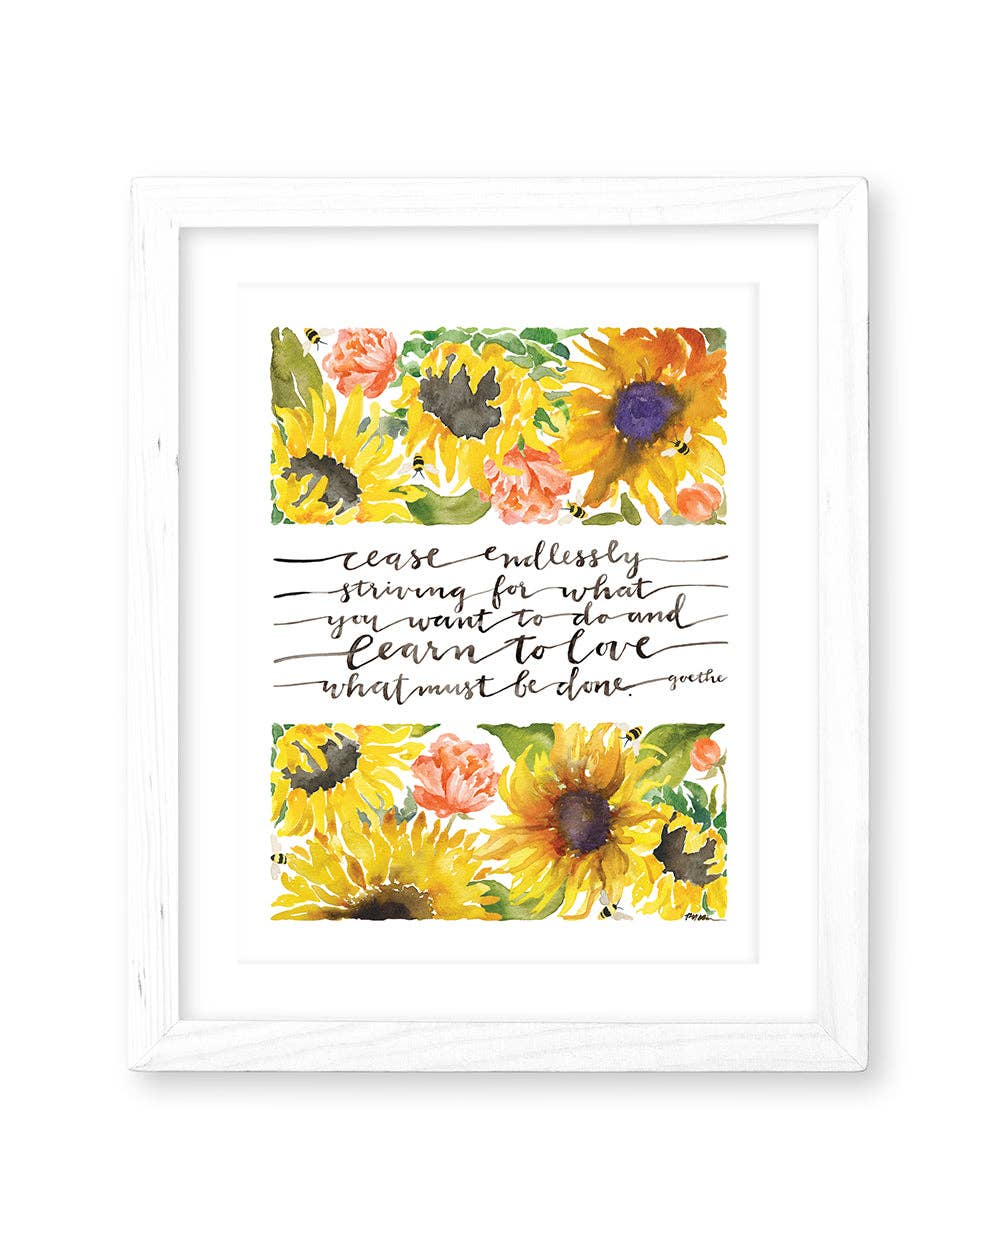 cease endlessly
striving for what
you want to do and
learn to love
what must be done. goethe